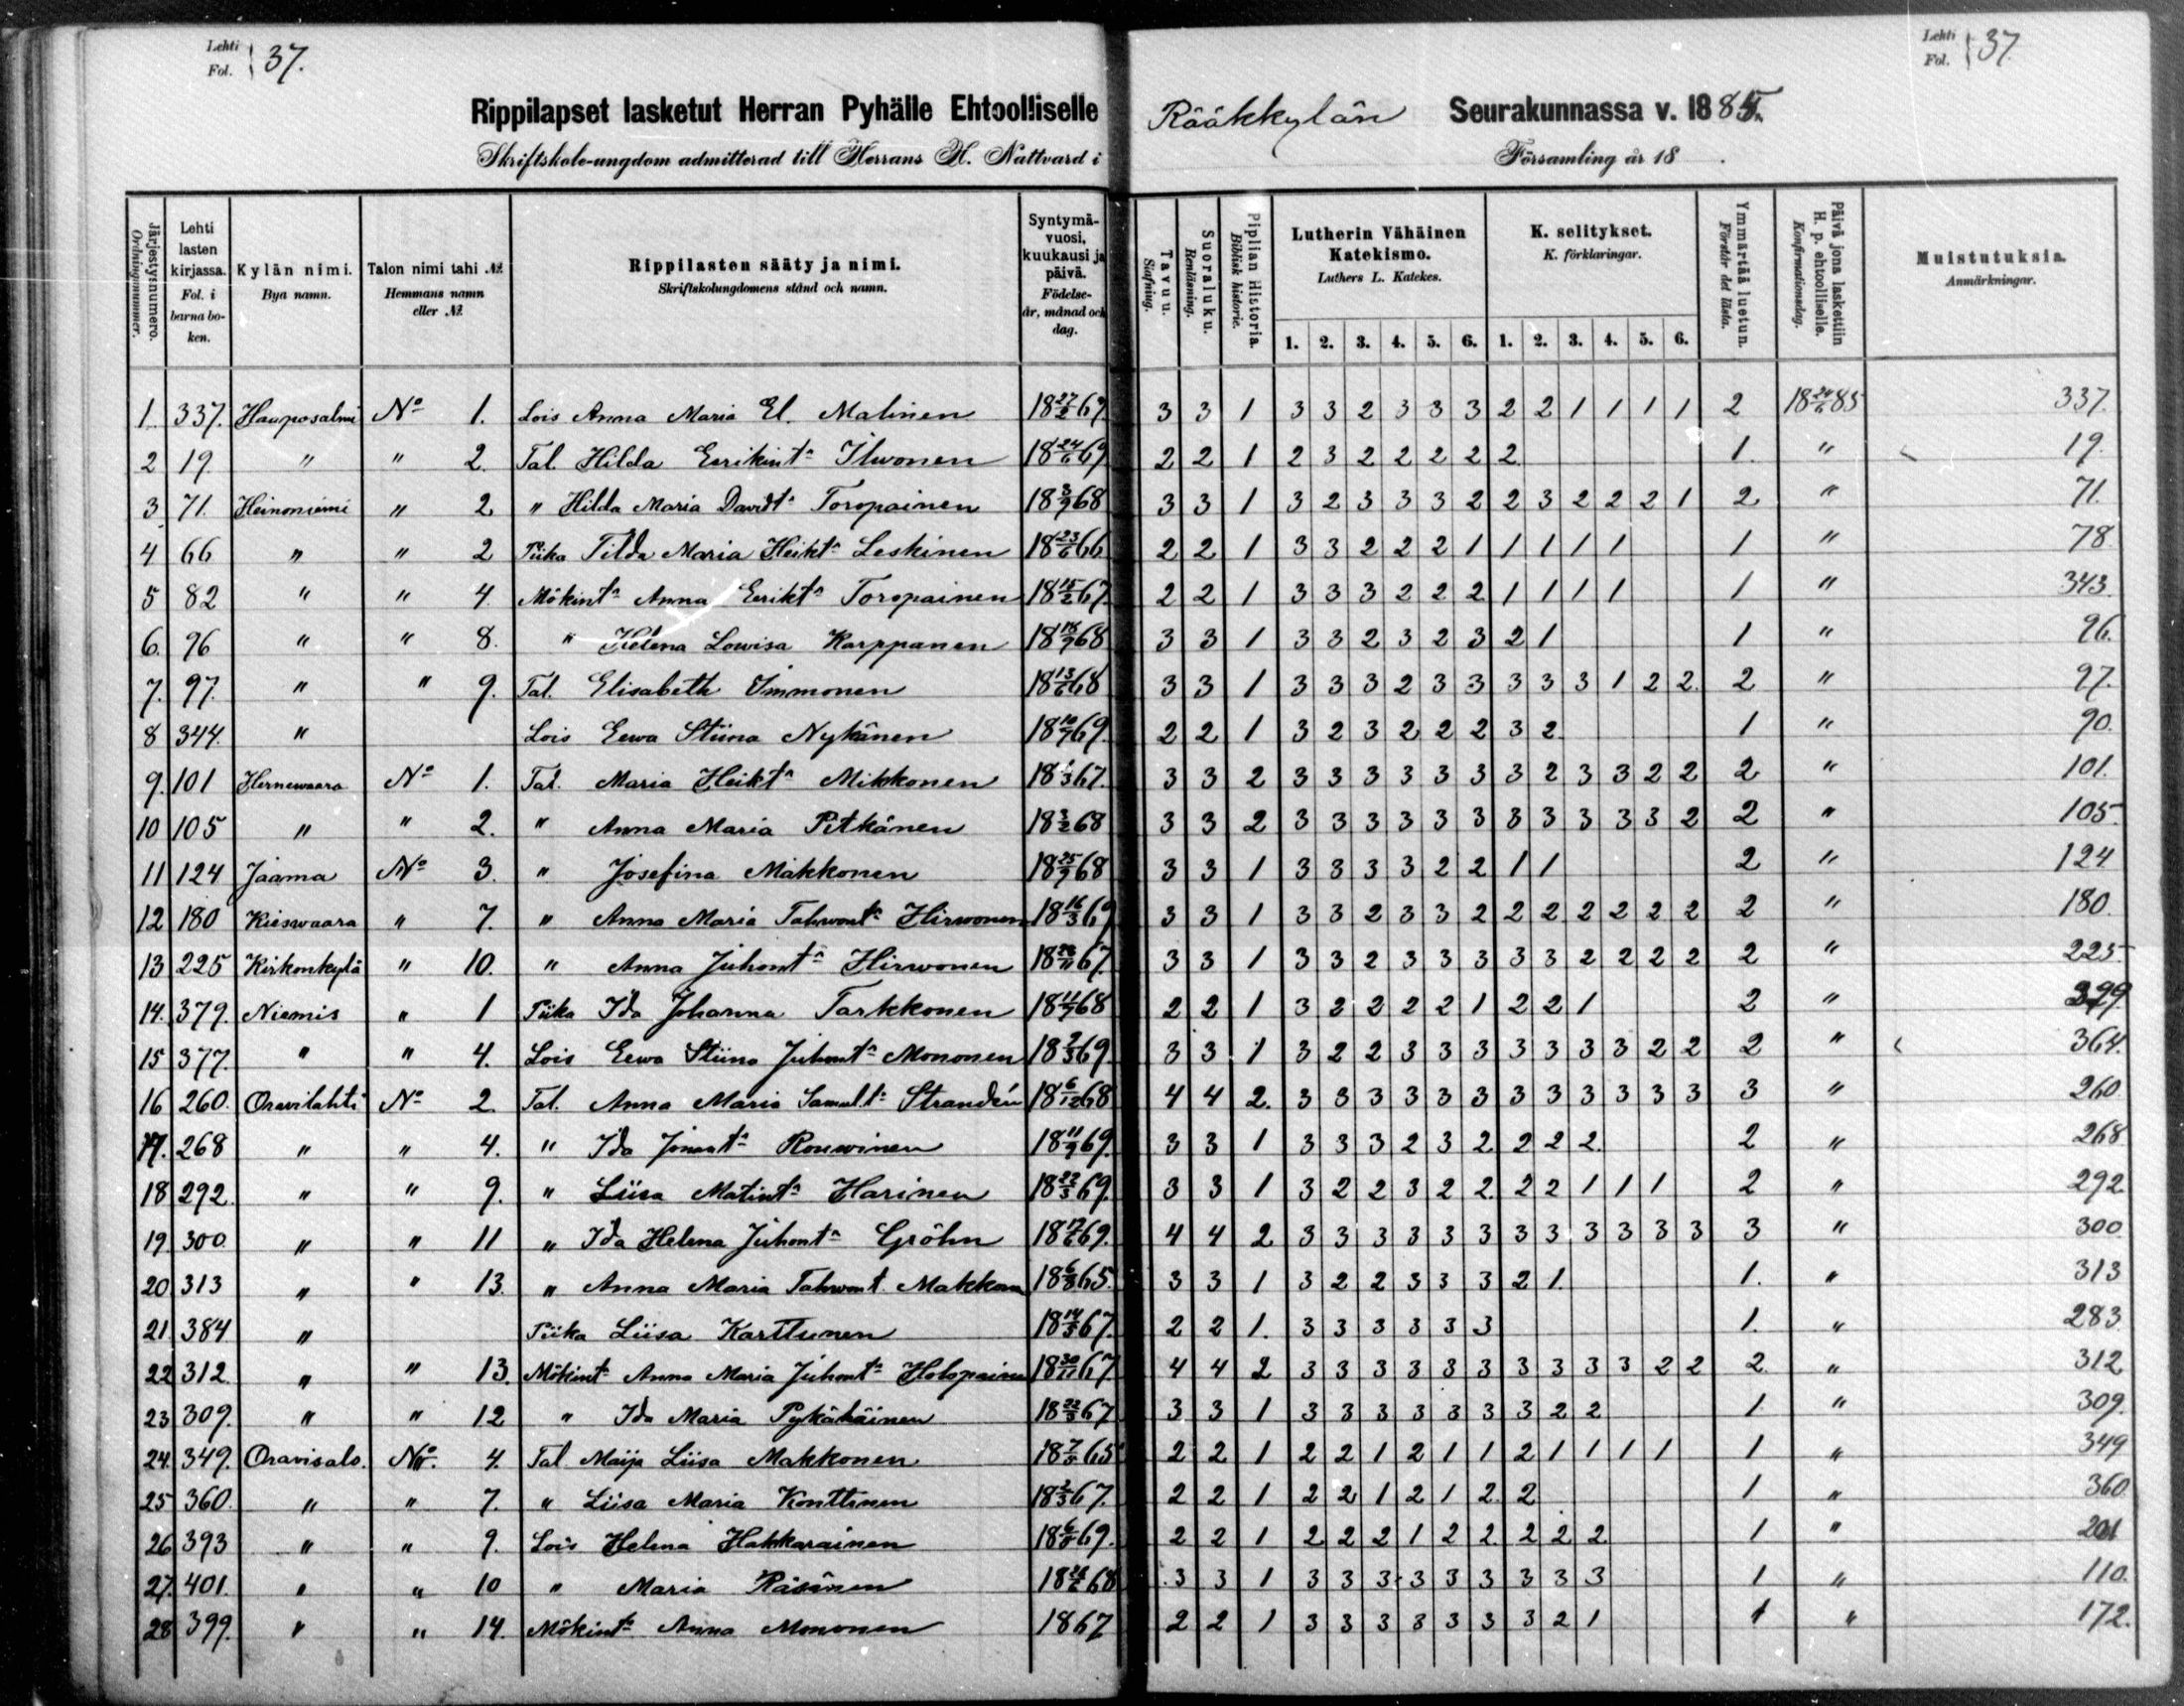 Lehti Fol. 37.
Lehti Fol. 37
Rippilapset lasketut Herran Pyhälle Ehtoolliselle Rääkkylän Seurakunnassa v. 1885.
Skriftskole-ungdom admitterad till Herrans H. Nattvard i Församling år 18 .
Järjestysnumero. Ordningsnummer.
Lehti lasten kirjassa. Fol. i barna boken.
Kylän nimi. Bya namn.
Talon nimi tahi №. Hemmans namn eller №.
Rippilasten sääty ja nimi. Skriftskolungdomens stånd och namn.
Syntymävuosi, kuukausi ja päivä. Födelseår, månad och dag.
Tavuu. Stafning.
Suoraluku. Renläsning.
Piplian Historia. Biblisk historie.
Lutherin Vähäinen Katekismo. Luthers L. Katekes.
K. selitykset. K. förklaringar.
Ymmärtää luetun. Förstår det lästa.
Päivä jona laskettiin H. p. ehtoolliselle. Konfirmationsdag.
Muistutuksia. Anmärkningar.
1. 2. 3. 4. 5. 6. 1. 2. 3. 4. 5. 6.
1. 337. Hauposalmi No 1. Lois Anna Maria El. Malinen 18 27/2 69. 3 3 1 3 3 2 3 3 3 2 2 1 1 1 1 2 18 24/6 85 337.
2 19 " " 2. Tal. Hilda Eerikint. Ilwonen 18 24/6 69 2 2 1 2 3 2 2 2 2 2 1. " 19.
3 71. Heinoniemi " 2. " Hilda Maria Davidt. Toropainen 18 3/9 68 3 3 1 3 2 3 3 3 2 2 3 2 2 2 1 2 " 71.
4 66 " " 2 Piika Tilda Maria Heikt. Leskinen 18 23/6 66 2 2 1 3 3 2 2 2 1 1 1 1 1 1 " 78
5 82 " " 4. Mökint. Anna Eerikt. Toropainen 18 15/2 67. 2 2 1 3 3 3 2 2 2 1 1 1 1 1 " 343.
6. 96 " " 8. " Helena Lowisa Karppanen 18 18/9 68 3 3 1 3 3 2 3 2 3 2 1 1 " 96.
7. 97. " " 9. Tal. Elisabeth Immonen 18 13/6 68 3 3 1 3 3 3 2 3 3 3 3 3 1 2 2. 2 " 97.
8 344. " Lois Eewa Stiina Nykänen 18 10/7 69. 2 2 1 3 2 3 2 2 2 3 2. 1 " 90.
9. 101 Hernewaara No 1. Tal. Maria Heikt. Mikkonen 18 1/3 67. 3 3 2 3 3 3 3 3 3 3 2 3 3 2 2 2 " 101.
10 105 " " 2. " Anna Maria Pitkänen 18 3/2 68 3 3 2 3 3 3 3 3 3 3 3 3 3 3 2 2 " 105
11 124 Jaama No 3. " Josefina Makkonen 18 25/9 68 3 3 1 3 3 3 3 2 2 1 1 2 " 124
12 180 Kieswaara " 7. " Anna Maria Tahwont. Hirwonen 18 16/3 69 3 3 1 3 3 2 3 3 2 2 2 2 2 2 2 2 " 180.
13 225 Kirkonkylä " 10. " Anna Juhont. Hirwonen 18 28/11 67. 3 3 1 3 3 2 3 3 3 3 3 2 2 2 2 2 " 225
14. 379. Niemis " 1 Piika Ida Johanna Tarkkonen 18 11/7 68 2 2 1 3 2 2 2 2 1 2 2 1 2 "
15 377. " " 4. Lois Eewa Stiina Juhont. Mononen 18 2/3 69. 3 3 1 3 2 2 3 3 3 3 3 3 3 2 2 2 " 364.
16 260. Oravilahti No 2. Tal. Anna Maria Samult. Strandén 18 6/12 68 4 4 2. 3 3 3 3 3 3 3 3 3 3 3 3 3 " 260
17. 268 " " 4. " Ida Jonant. Rouwinen 18 11/9 69. 3 3 1 3 3 3 2 3 2 2 2 2. 2 " 268
18 292. " " 9. " Liisa Matint. Harinen 18 22/3 69. 3 3 1 3 2 2 3 2 2. 2 2 1 1 1 2 " 292
19. 300. " " 11 " Ida Helena Juhont. Gröhn 18 17/6 69. 4 4 2 3 3 3 3 3 3 3 3 3 3 3 3 3 " 300
20 313 " " 13. " Anna Maria Tahwont. Makkonen 18 6/8 65. 3 3 1 3 2 2 3 3 3 2 1. 1. " 313
21. 384 " Piika Liisa Karttunen 18 14/5 67. 2 2 1. 3 3 3 3 3 3 1. " 283
22 312. " " 13. Mökint. Anna Maria Juhont. Holopainen 18 30/11 67 4 4 2 3 3 3 3 3 3 3 3 3 3 2 2 2. " 312
23 309. " " 12 " Ida Maria Pykäläinen 18 22/3 67 3 3 1 3 3 3 3 3 3 3 2 2 1 " 309.
24. 349. Oravisalo. No. 4. Tal Maija Liisa Makkonen 18 7/5 65 2 2 1 2 2 1 2 1 1 2 1 1 1 1 1 " 349
25 360. " " 7. " Liisa Maria Konttinen 18 2/3 67. 2 2 1 2 2 1 2 1 2. 2 1 " 360
26 393 " " 9. Lois Helena Hakkarainen 18 6/5 69. 2 2 1 2 2 2 1 2 2. 2 2 2 1 " 201
27. 401. " " 10 " Maria Räsänen 18 26/6 68 3 3 1 3 3 3 3 3 3 3 3 3 1 " 110.
28 399. " " 14. Mökint. Anna Mononen 1867 2 2 1 3 3 3 3 3 3 3 2 1 1 " 172.